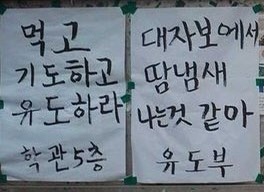 먹고
기도하고
유도하라
학관5층
대자보에서
땀냄새
나는것 같아
유도부